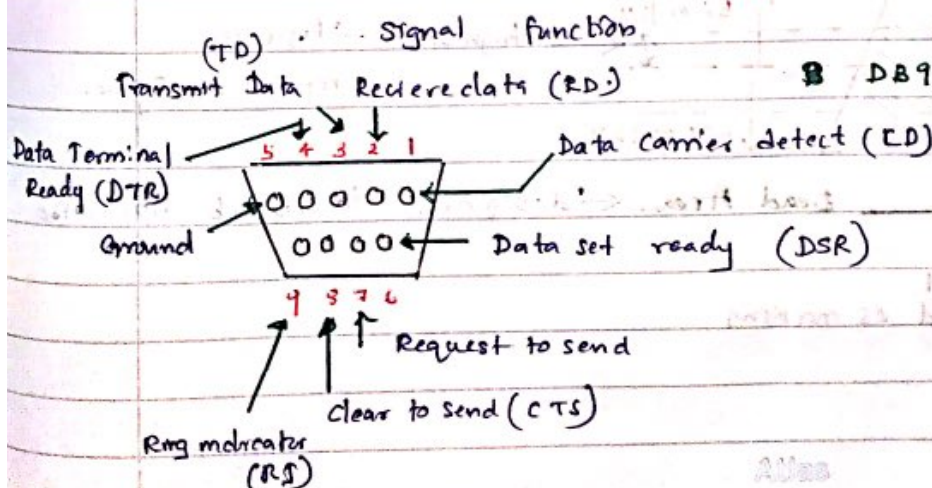 signal function
(TD)
Transmit Data Recieve data (RD)
DB9
Data Terminal
Ready (DTR)
5 4 3 2 1
Data Carrier detect (CD)
Ground
Data set ready (DSR)
9 8 7 6
Request to send
Clear to send (CTS)
Ring indicator
(RI)